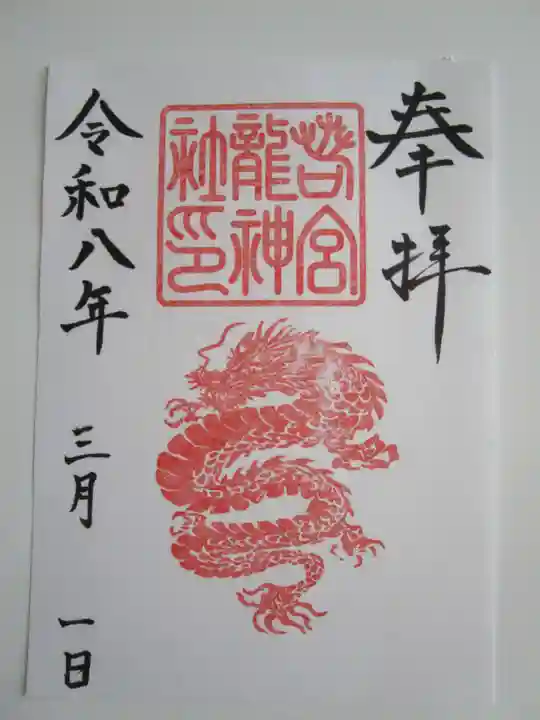 奉拝
若宮
龍神
社印
令和八年 三月 一日